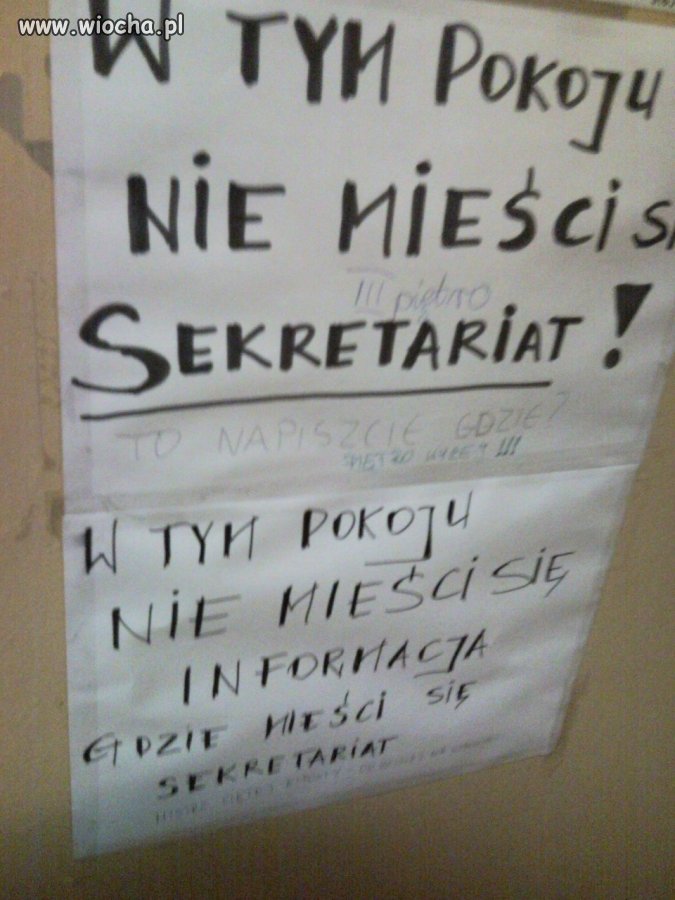 www.wiocha.pl
W TYM POKOJU
NIE MIEŚCI SI
III piętro
SEKRETARIAT!
TO NAPISZCIE GDZIE?
PIĘTRO WYŻEJ !!!
W TYM POKOJU
NIE MIEŚCI SIĘ
INFORMACJA
GDZIE MIEŚCI SIĘ
SEKRETARIAT